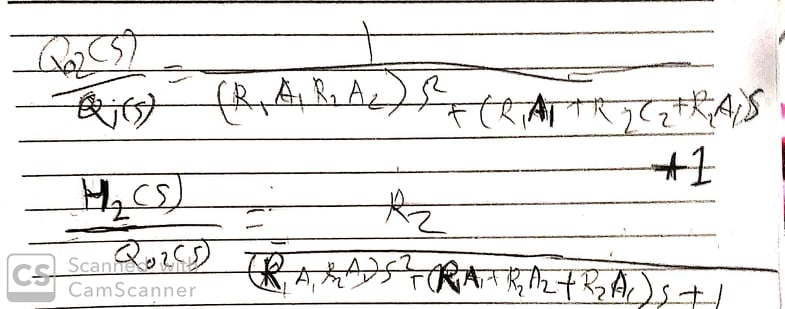 Q02(s) / Qi(s) = 1 / (R1 A1 R2 A2) s² + (R1 A1 + R2 C2 + R2 A1) s + 1
H2(s) / Q02(s) = R2 / (R1 A1 R2 A2) s² + (R1 A1 + R2 A2 + R2 A1) s + 1
CS Scanned with CamScanner